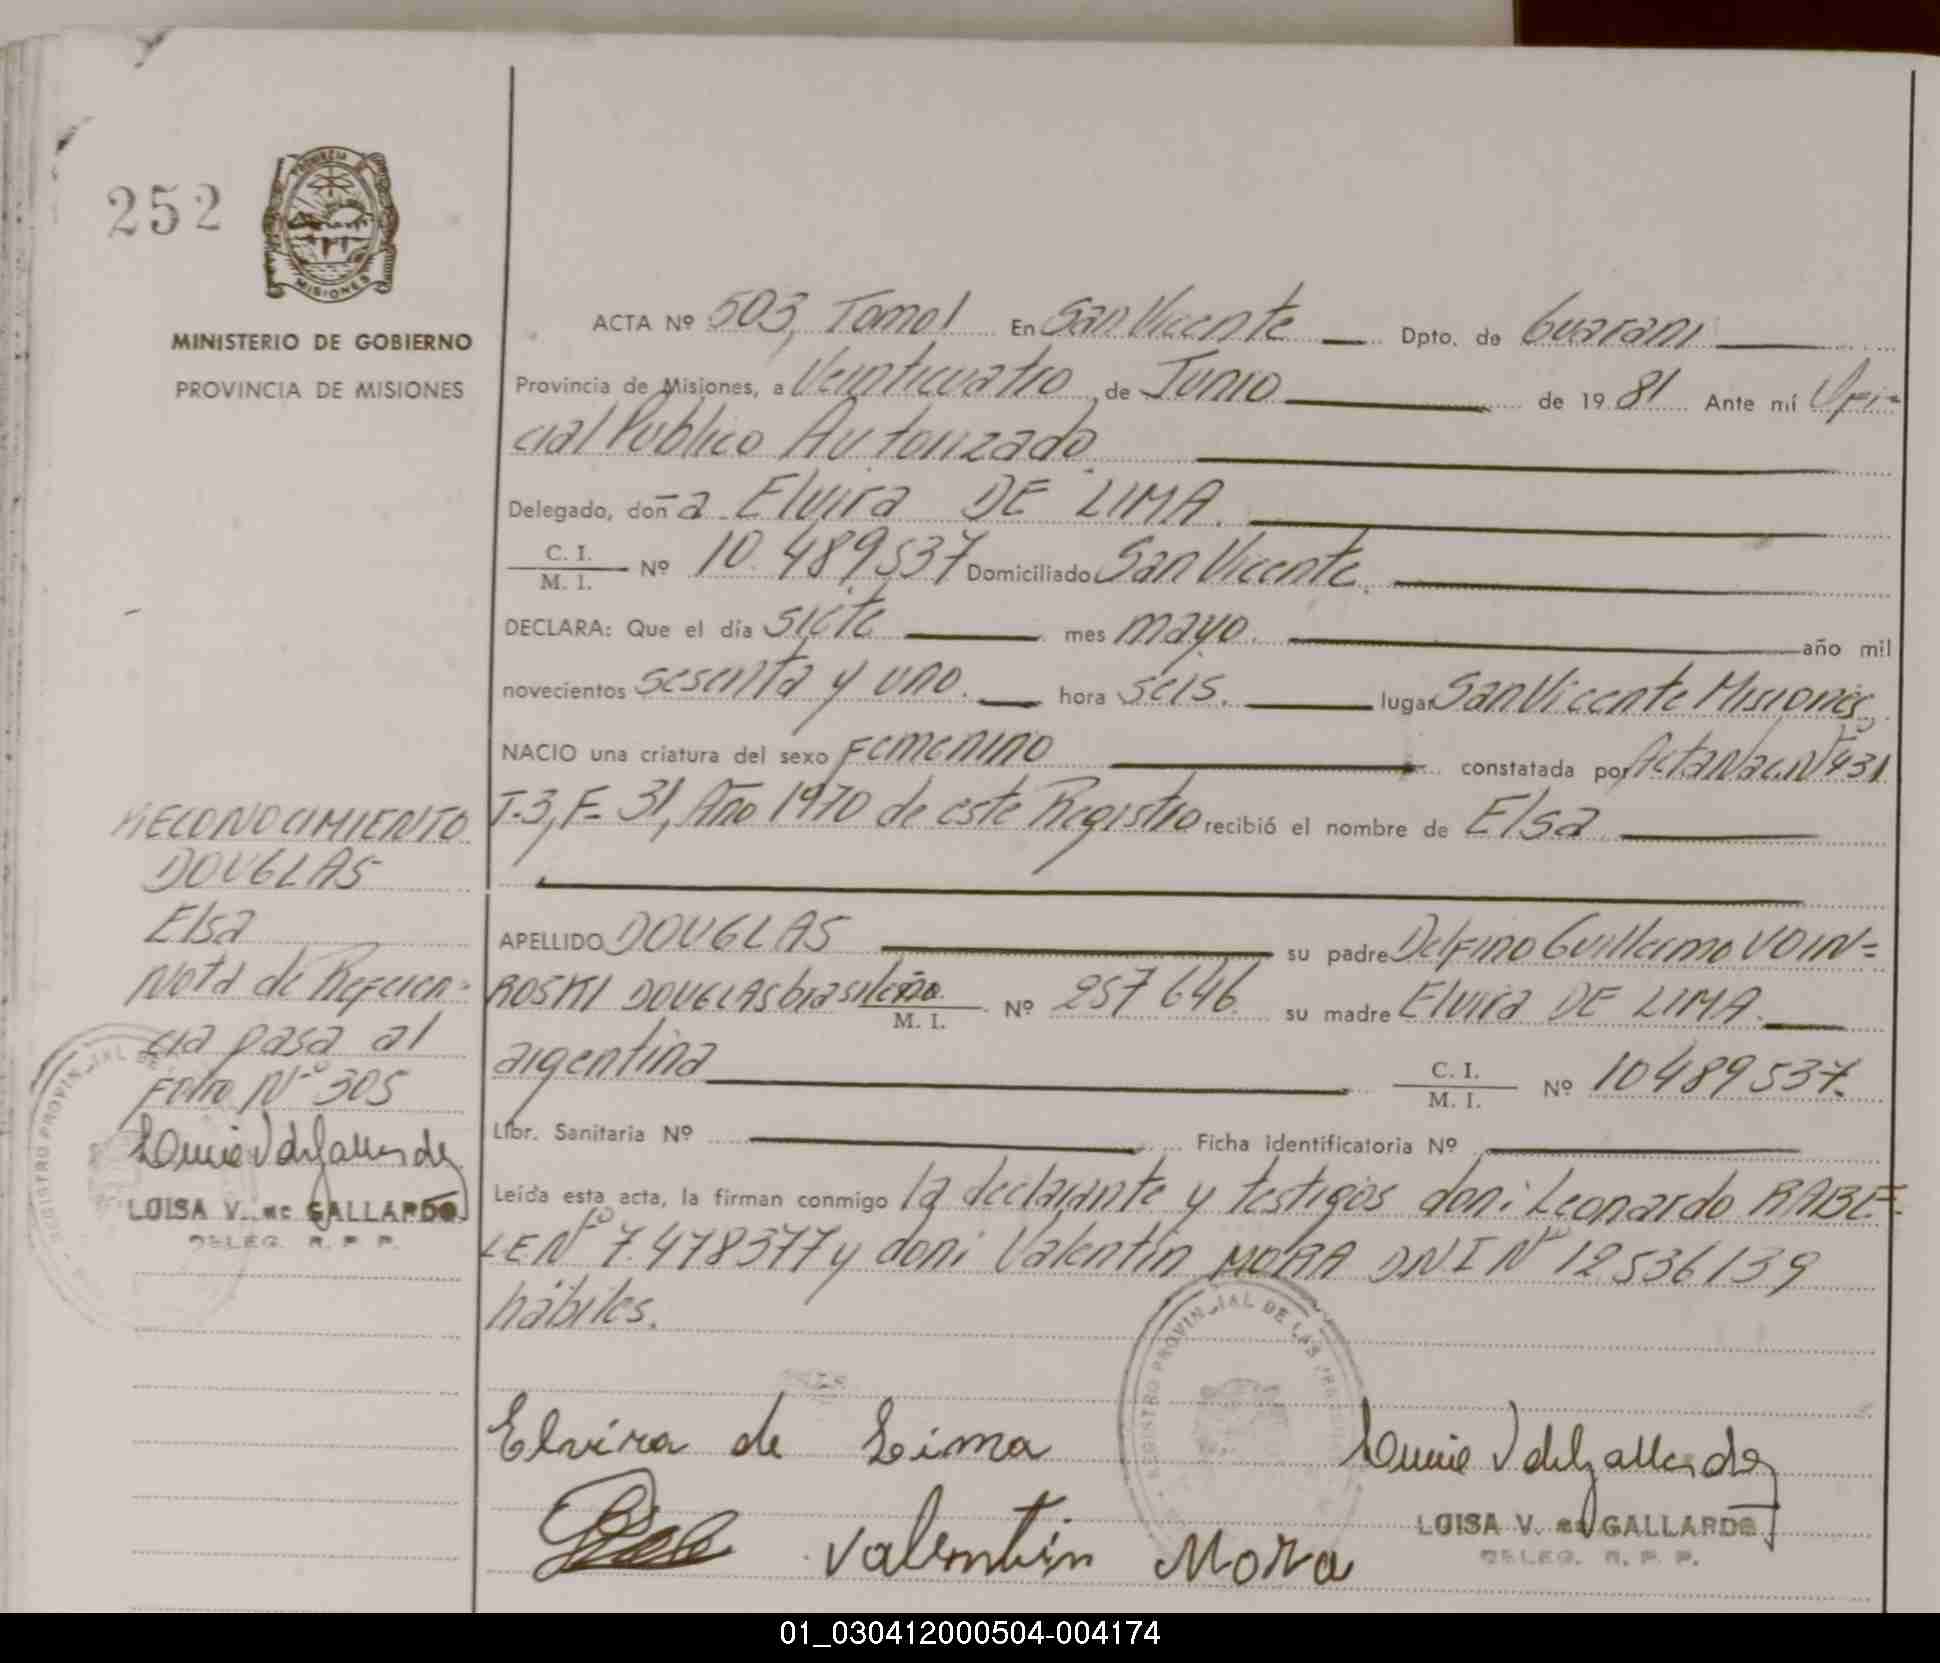 252
PROVINCIA DE
MISIONES
MINISTERIO DE GOBIERNO
PROVINCIA DE MISIONES
ACTA Nº 503, Tomo I En San Vicente Dpto. de Guaraní
Provincia de Misiones, a Veinticuatro de Junio de 1981 Ante mí Ofi-
cial Público Autorizado
Delegado, doña Elvira DE LIMA.
C. I.
M. I. Nº 10.489537 Domiciliado San Vicente.
DECLARA: Que el día siete mes mayo. año mil
novecientos sesenta y uno. hora seis. lugar San Vicente Misiones
NACIO una criatura del sexo Femenino constatada por Acta Nac. Nº 931
T-3, F- 31, Año 1970 de este Registro recibió el nombre de Elsa
APELLIDO DOUGLAS su padre Delfino Guillermo VOIN=
ROSKI DOUGLAS brasileño. M. I. Nº 257646 su madre Elvira DE LIMA.
argentina C. I.
M. I. Nº 10489537.
Libr. Sanitaria Nº Ficha identificatoria Nº
Leída esta acta, la firman conmigo la declarante y testigos don: Leonardo RABE
LE Nº 7.478377 y don: Valentín MORA DNI Nº 12536139
hábiles.
RECONOCIMIENTO
DOUGLAS
Elsa
Nota de Referen-
cia pasa al
Folio Nº 305
LUISA V. de GALLARDO
DELEG. R. P. P.
REGISTRO PROVINCIAL
Elvira de Lima
Valentin Mora
REGISTRO PROVINCIAL DE LAS PERSONAS
LUISA V. de GALLARDO
DELEG. R. P. P.
01_030412000504-004174